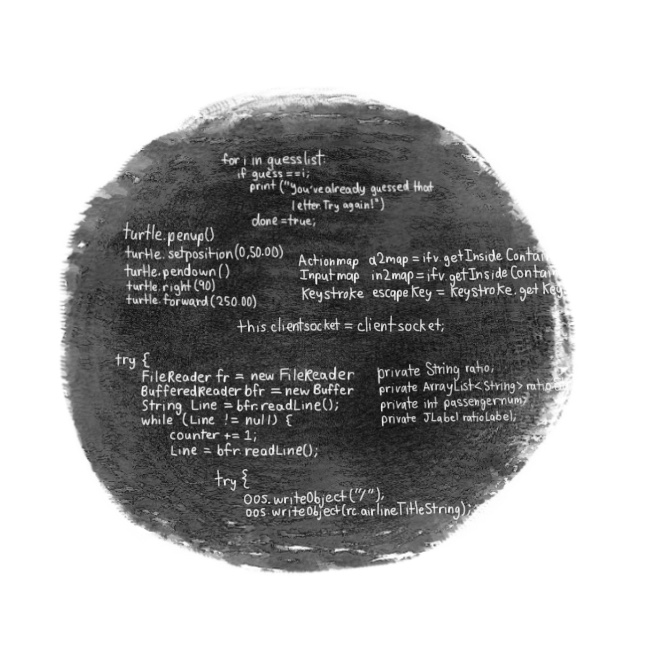 for i in guesslist:
if guess ==i;
print ("You've already guessed that
letter. Try again!")
done =true;
turtle.penup()
turtle. setposition(0,50.00)
turtle.pendown()
turtle.right(90)
turtle.forward(250.00)
Actionmap a2map = ifv.getInside Contai
Inputmap in2map = ifv.getInside Contai
Keystroke escape Key = Keystroke.get Key
this clientsocket = clientsocket;
try {
FileReader fr = new FileReader
BufferedReader bfr = new Buffer
String Line = bfr.readLine();
while (Line != null) {
counter += 1;
Line = bfr.readLine();
private String ratio;
private ArrayList<String> ratio
private int passengernum;
private JLabel ratioLabel;
try {
oos.writeObject("/");
oos writeObject(rc.airlineTitleString);